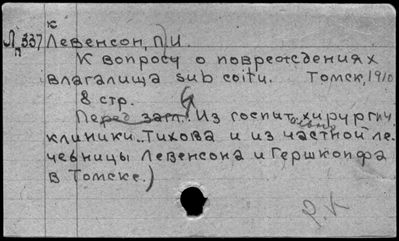 к
Л 337 Левенсон, П.И.
К вопросу о повреждениях
влагалища sub coitu. Томск, 1910
8 стр.
Перед загл.: Из госпит. хирургич.
клиники.. Тихова и из частной ле
чебницы Левенсона и Гершкопфа
в Томске.)
Р. К